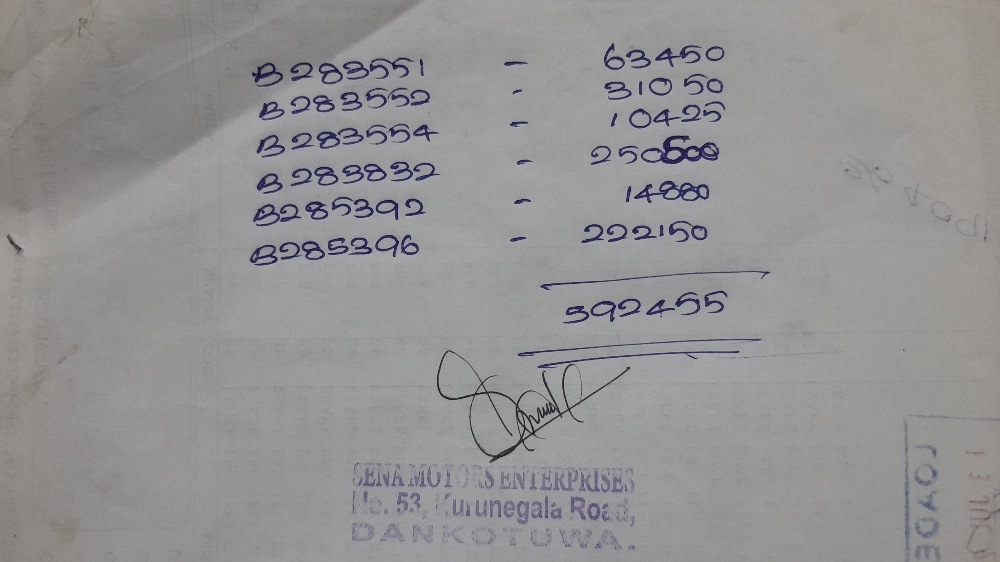 B283551 - 63450
B283552 - 31050
B283554 - 10425
B283832 - 250500
B285392 - 14880
B285396 - 222150
592455
SENA MOTORS ENTERPRISES
No. 53, Kurunegala Road,
DANKOTUWA.
LOADE